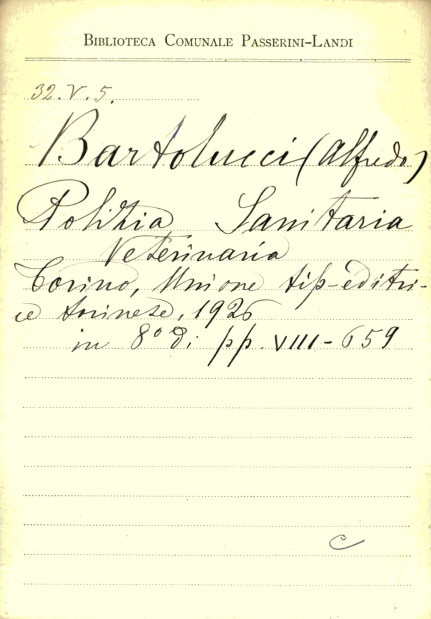 BIBLIOTECA COMUNALE PASSERINI-LANDI
32.V.5.
Bartolucci (Alfredo)
Polizia Sanitaria
Veterinaria
Torino, Unione tip-editri-
ce torinese, 1926
in 8º di pp. VIII-659
C